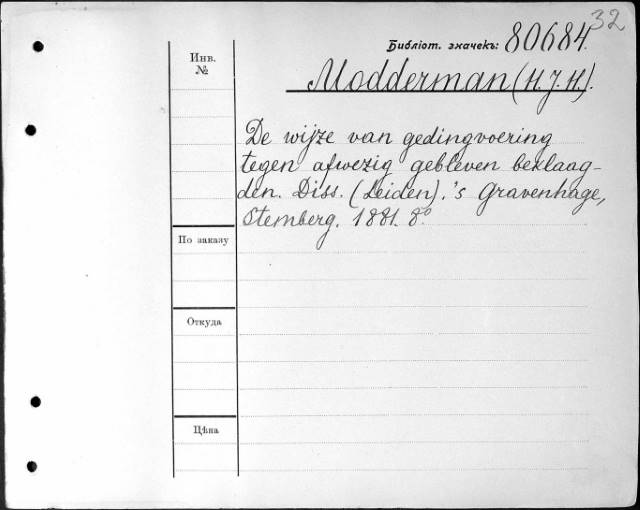 32
Библіот. значекъ: 80684.
Инв.
№
Modderman (H. J. H.).
De wijze van gedingvoering
tegen afwezig gebleven beklaag-
den. Diss. (Leiden). 's Gravenhage,
Stemberg. 1881. 8°
По заказу
Откуда
Цѣна